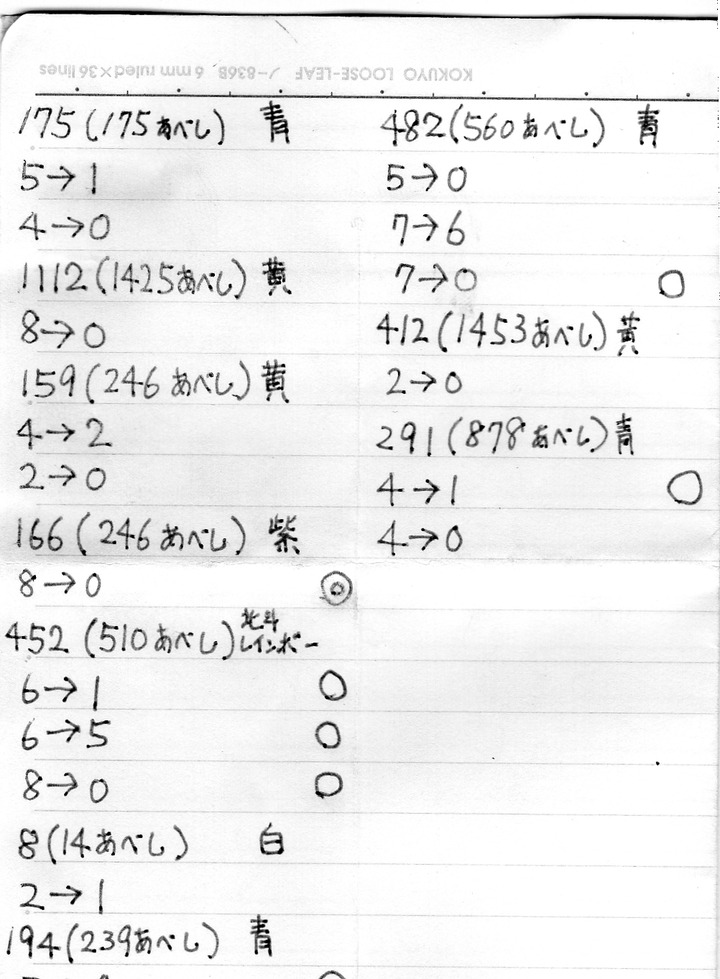 KOKUYO LOOSE-LEAF ノ-836B 6mm ruled×36 lines
175(175あべし) 青
5→1
4→0
1112(1425あべし) 黄
8→0
159(246あべし) 黄
4→2
2→0
166(246あべし) 紫
8→0 ◎
452(510あべし) 北斗レインボー
6→1 ○
6→5 ○
8→0 ○
8(14あべし) 白
2→1
194(239あべし) 青
482(560あべし) 青
5→0
7→6
7→0 ○
412(1453あべし) 黄
2→0
291(878あべし) 青
4→1 ○
4→0